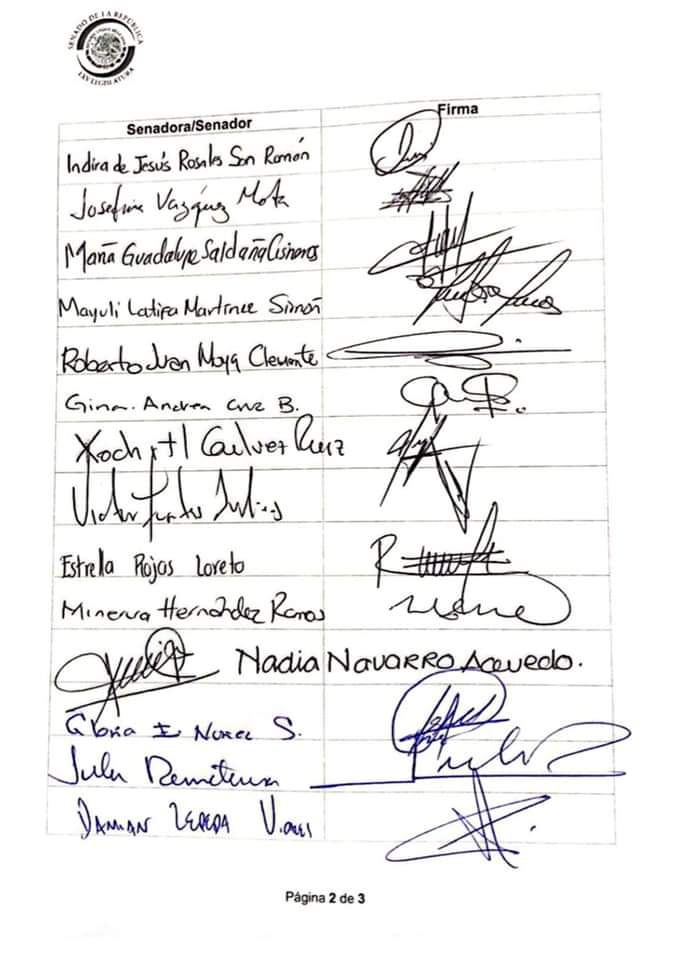 SENADO DE LA REPÚBLICA
LXV LEGISLATURA
Senadora/Senador Firma
Indira de Jesús Rosales San Román
Josefina Vázquez Mota
María Guadalupe Saldaña Cisneros
Mayuli Latifa Martínez Simón
Roberto Juan Moya Clemente
Gina Andrea Cruz B.
Xochitl Galvez Ruiz
Victor Fuentes Solis
Estrella Rojas Loreto
Minerva Hernández Ramos
Nadia Navarro Acevedo.
Gloria E Nuñez S.
Julen Rementeria
DAMIAN ZEPEDA VIDALES
Página 2 de 3